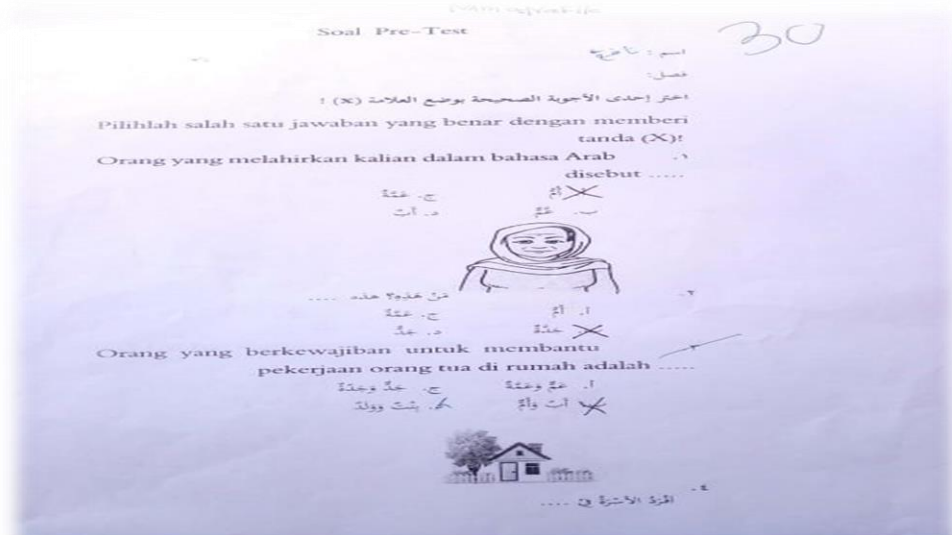 Soal Pre-Test
30
اسم :
فصل:
اختر إحدى الأجوبة الصحيحة بوضع العلامة (x) !
Pilihlah salah satu jawaban yang benar dengan memberi
tanda (X)!
١. Orang yang melahirkan kalian dalam bahasa Arab
disebut .....
أُمٌّ ج. عَمَّةٌ
ب. عَمٌّ د. أَبٌ
٢. مَنْ هَذِهِ؟ هذه ....
ا. أُمٌّ ج. عَمَّةٌ
جَدَّةٌ د. جَدٌّ
٣. Orang yang berkewajiban untuk membantu
pekerjaan orang tua di rumah adalah .....
أ. عَمٌّ وَعَمَّةٌ ج. جَدٌّ وَجَدَّةٌ
أَبٌ وَأُمٌّ د. بِنْتٌ وَوَلَدٌ
٤. الأُسْرَةُ فِيْ ....